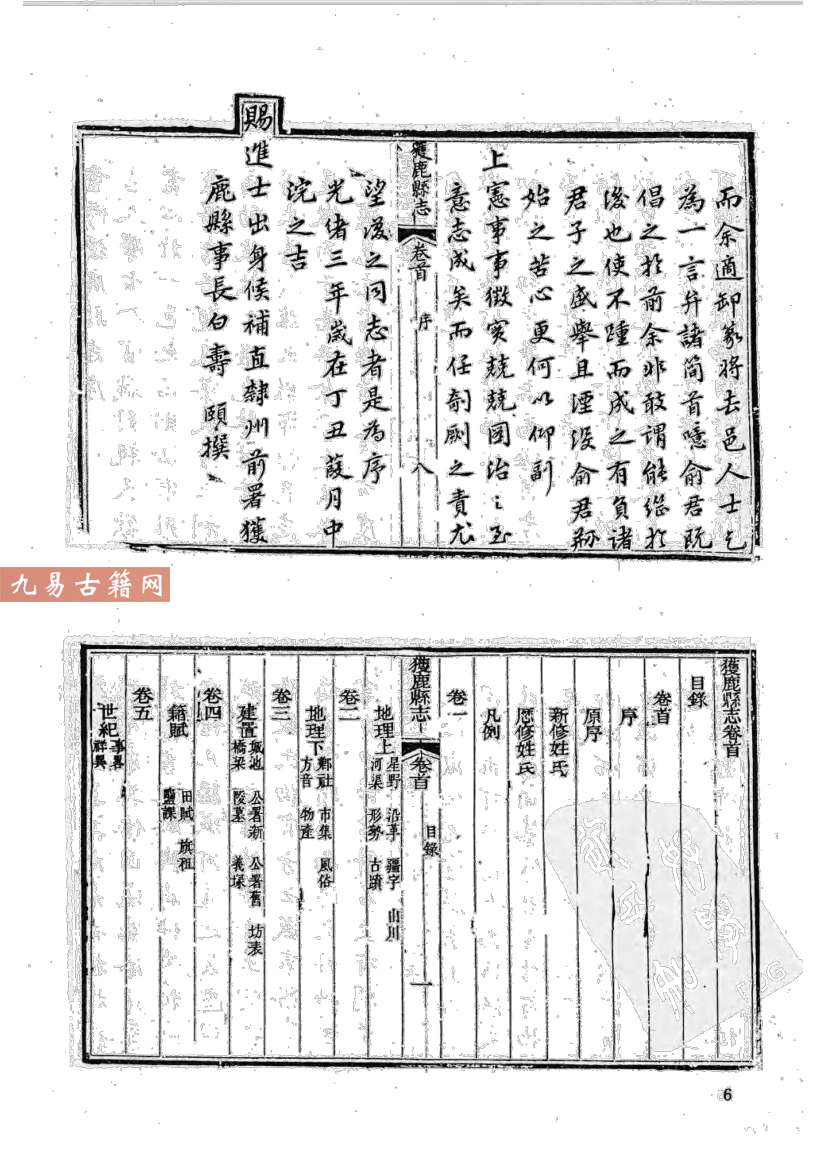 而余適卸篆將去邑人士乞
為一言弁諸簡首噫俞君既
倡之於前余非敢謂能繼於
後也使不踵而成之有負諸
君子之盛舉且湮沒俞君刱
始之苦心更何以仰副
上憲事事徵實兢兢圖治之至
意志成矣而任剞劂之責尤
獲鹿縣志 卷首 序 八
望後之同志者是為序
光緒三年歲在丁丑葭月中
浣之吉
賜進士出身候補直隸州前署獲
鹿縣事長白壽頤撰
九易古籍网
獲鹿縣志卷首
目錄
卷首
序
原序
新修姓氏
歷修姓氏
凡例
卷一
地理上 星野 沿革 疆宇 山川
河渠 形勢 古蹟
獲鹿縣志 卷首 目錄 一
卷二
地理下 鄉社 市集 風俗
方音 物產
卷三
建置 城池 公署新 公署舊 坊表
橋梁 陵墓 義塚
卷四
籍賦 田賦 旗租
鹽課
卷五
世紀 事畧
祥異
6